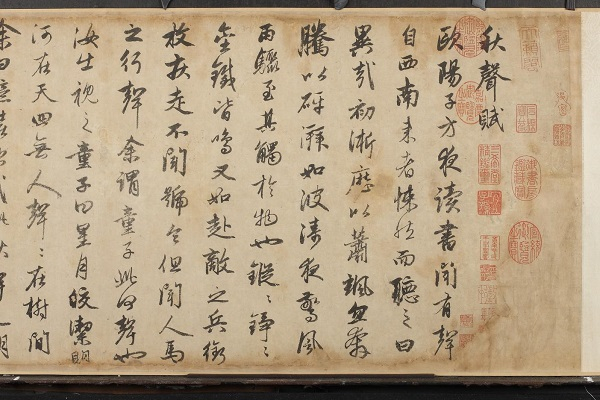 秋聲賦
歐陽子方夜讀書聞有聲
自西南來者悚然而聽之曰
異哉初淅瀝以蕭颯忽奔
騰以砰湃如波濤夜驚風
雨驟至其觸於物也鏦〻錚〻
金鐵皆鳴又如赴敵之兵銜
枚疾走不聞號令但聞人馬
之行聲余謂童子此何聲也
汝出視之童子曰星月皎潔明
河在天四無人聲〻在樹間
余曰